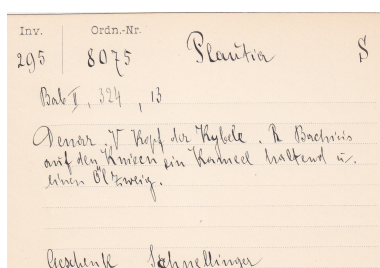 Inv. Ordn.-Nr.
295 8075 Plautia S
Bab II, 324, 13
Denar. V Kopf der Kybele. R Bachiis
auf den Knieen ein Kameel haltend u.
einen Ölzweig.
Geschenk Schnellinger